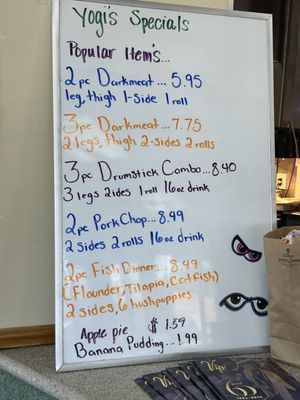 Yogi's Specials
Popular Item's...
2pc Darkmeat... 5.95
leg, thigh 1-side 1 roll
3pc Darkmeat... 7.75
2 legs, thigh 2-sides 2 rolls
3pc Drumstick Combo... 8.40
3 legs 2sides 1roll 16oz drink
2pc Pork Chop... 8.49
2 sides 2 rolls 16oz drink
2pc Fish Dinner... 8.49
(Flounder, Tilapia, Catfish)
2 sides, 6 hushpuppies
Apple pie $1.59
Banana Pudding...1.99